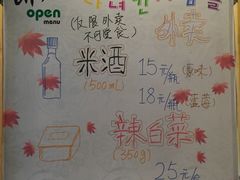 open
menu
(仅限外卖
不可堂食)
外卖
米酒
(500ml)
15元/瓶 (原味)
18元/瓶 (蓝莓)
辣白菜
(350g)
25元/